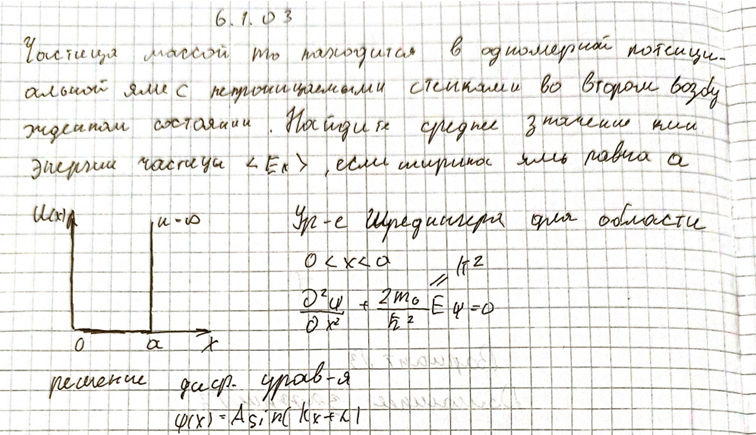 6.1.03
Частица массой m₀ находится в одномерной потенци-
альной яме с непроницаемыми стенками во втором возбу
жденном состоянии. Найдите среднее значение кин
энергии частицы <Eₖ>, если ширина ямы равна a
U(x) u=∞
0 a x
Ур-е Шредингера для области
0 < x < a
k²
∂²ψ/∂x² + 2m₀/ħ² E ψ = 0
решение диф. урав-я
ψ(x) = A sin( kx + α)